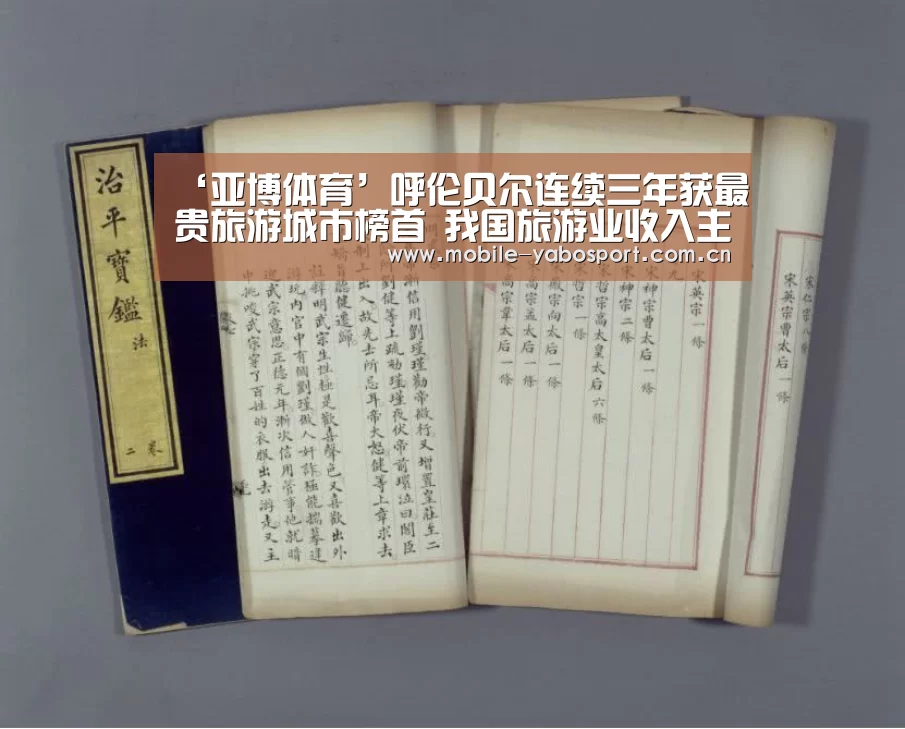 ‘亚博体育’呼伦贝尔连续三年获最
贵旅游城市榜首 我国旅游业收入主
www.mobile-yabosport.com.cn
治平寶鑑
法
卷二
宋仁宗八條
宋英宗曹太后一條
宋英宗一條
宋神宗曹太后一條
宋神宗二條
宋哲宗高太皇太后六條
宋哲宗一條
向太后一條
孟太后一條
宋高宗韋太后一條
漸信用劉瑾瑾勸帝微行又增置皇莊至二
所劉健等上疏劾瑾瑾夜伏帝前環泣曰閣臣
制上出入故先去所忌耳帝大怒健等上章求去
矯旨聽健遷歸
莊辭明武宗生性極是歡喜聲色又喜歡出外
游玩内官中有個劉瑾做人奸詐極能揣摹建
迎武宗意思正德元年漸次信用管事他就暗
中挑唆武宗穿了百姓的衣服出去游走又主